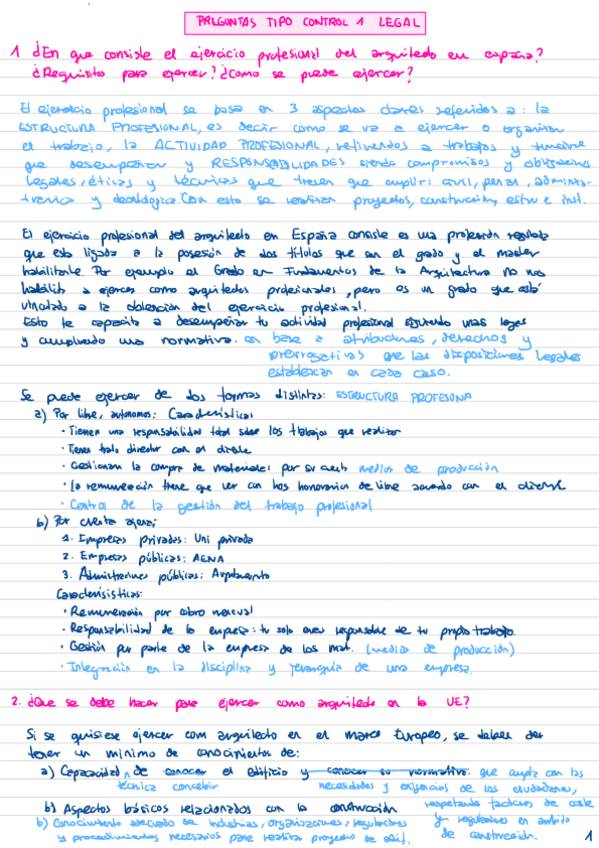 PREGUNTAS TIPO CONTROL 1 LEGAL
1 ¿En que consiste el ejercicio profesional del arquitecto en españa?
¿Requisitos para ejercer? ¿Como se puede ejercer?
El ejercicio profesional se basa en 3 aspectos claves referidos a: la
ESTRUCTURA PROFESIONAL, es decir como se va a ejercer o organizar
el trabajo, la ACTIVIDAD PROFESIONAL, refiriendos a trabajos y
que desempeñan y RESPONSABILIDADES siendo compromisos y obligaciones
legales, éticas y técnicas que tienen que cumplir: civil, penal, adminis-
trativa y deontológica. Con esto se realizan proyectos, construcción,
El ejercicio profesional del arquitecto en España consiste es una profesión regulada
que esta ligada a la posesión de dos títulos que son el grado y el master
habilitante. Por ejemplo el Grado en Fundamentos de la Arquitectura no nos
habilita a ejercer como arquitectos profesionales, pero es un grado que está
vinculado a la obtención del ejercicio profesional.
Esto te capacita a desempeñar tu actividad profesional siguiendo unas leyes
y cumpliendo una normativa. en base a atribuciones, derechos y
prerrogativas que las disposiciones legales
establezcan en cada caso.
Se puede ejercer de dos formas distintas: ESTRUCTURA PROFESIONA
a) Por libre, autonomos: Características
· Tienen una responsabilidad total sobre los trabajos que realizan
· Tienen trato director con el cliente
· Gestionan la compra de materiales por su cuenta medios de producción
· La remuneración tiene que ver con los honorarios de libre acuerdo con el cliente
· Control de la gestión del trabajo profesional
b) Por cuenta ajena:
1. Empresas privadas: Uni privada
2. Empresas públicas: AENA
3. Administraciones públicas: Ayuntamiento
Características:
· Remuneración por cobro mensual
· Responsabilidad de la empresa: tu solo eres responsable de tu propio trabajo.
· Gestión por parte de la empresa de los mat. (medios de producción)
· Integración en la disciplina y jerarquía de una empresa.
2. ¿Que se debe hacer para ejercer como arquitecto en la UE?
Si se quisiese ejercer com arquitecto en el marco Europeo, se deben de
tener un mínimo de conocimientos de:
a) Capacidad de conocer el edificio y conocer su normativa. que cumpla con las
técnica concebir necesidades y exigencias de los ciudadanos,
b) Aspectos básicos relacionados con la construcción respetando factores de coste
b) Conocimiento adecuado de industrias, organizaciones, regulaciones y regulaciones en ámbito
y procedimientos necesarios para realizar proyectos de edif. de construcción.
1